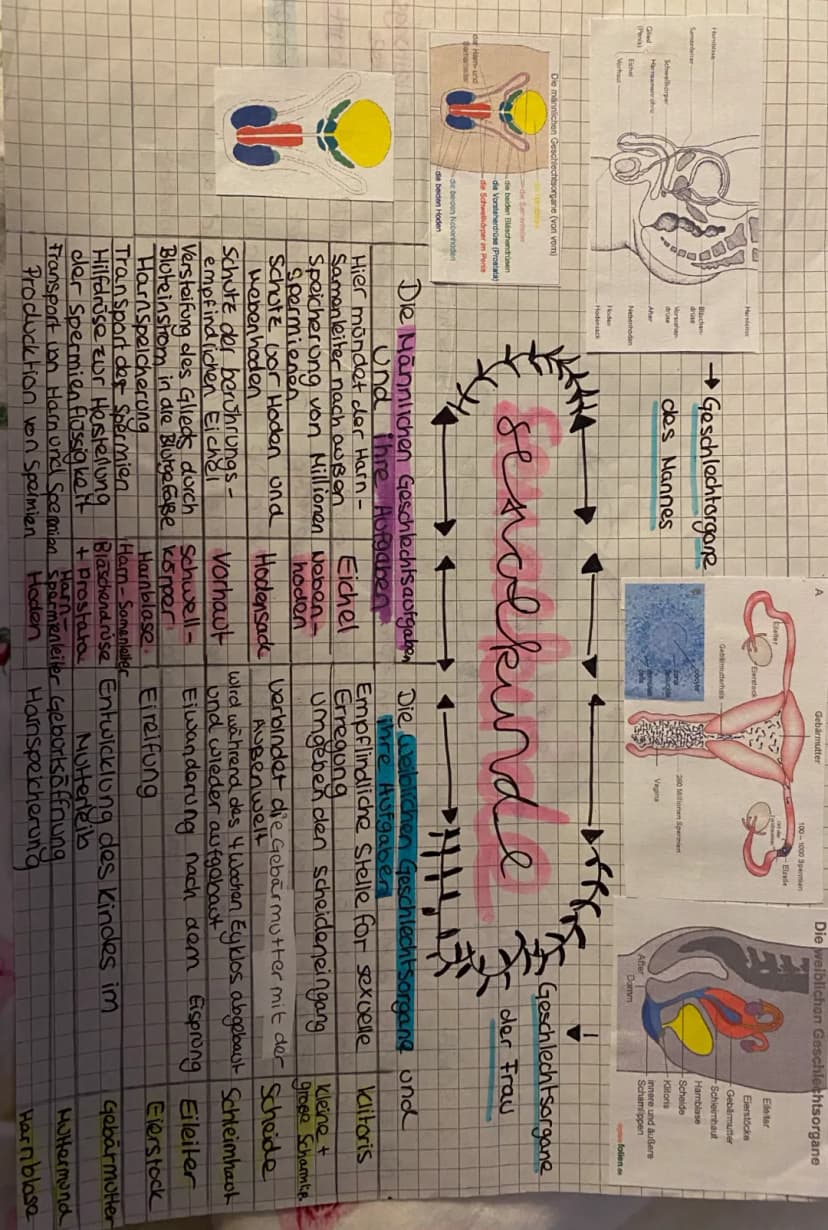 → Geschlechtsorgane
des Mannes
Harnblase
Samenleiter
Schwellkörper
Harnsamenröhre
Glied
(Penis)
Eichel
Vorhaut
Harnleiter
Bläschen-
drüse
Vorsteher-
drüse
After
Nebenhoden
Hoden
Hodensack
Die männlichen Geschlechtsorgane (von vorn)
die beiden Bläschendrüsen
die Vorsteherdrüse (Prostata)
die Schwellkörper im Penis
die beiden Nebenhoden
die beiden Hoden
A
Gebärmutter
Eileiter
Eierstock
Gebärmutterhals
100 – 1000 Spermien
Eizelle
280 Millionen Spermien
Vagina
Die weiblichen Geschlechtsorgane
Eileiter
Eierstöcke
Gebärmutter
Schleimhaut
Harnblase
Scheide
Klitoris
innere und äußere
Schamlippen
After
Damm
folien.de
Sexualkunde
Geschlechtsorgane
der Frau
Die Männlichen Geschlechtsaufgaben
und ihre Aufgaben
Hier mündet der Harn-
Samenleiter nach außen
Eichel
Speicherung von Millionen
Spermienen
Neben-
hoden
Schutz vor Hoden und
Nebenhoden
Hodensack
Schutz der berührungs-
empfindlichen Eichel
Vorhaut
Versteifung des Glieds durch
Bluteinstrom in die Blutgefäße
Schwell-
körper
Harnspeicherung
Harnblase
Transport der Spermien
Harn-Samenleiter
Hilfdrüse zur Herstellung
der Spermienflüssigkeit
Bläschendrüse
+ Prostata
Transport von Harn und Spermien
Harn-
Spermenleiter
Producktion von Spermien
Hoden
Die weiblichen Geschlechtsorgane und
ihre Aufgaben
Empfindliche Stelle für sexuelle
Erregung
Klitoris
Umgeben den scheideneingang
Kleine +
große Schamlip.
Verbindet die Gebärmutter mit der
Außenwelt
Scheide
wird während des 4 Wochen Zyklos abgebaut
und wieder aufgebaut
Schleimhaut
Eiwanderung nach dem Eisprung
Eileiter
Eireifung
Eierstock
Entwicklung des Kindes im
Mutterleib
Gebärmutter
Geburtsöffnung
Muttermund
Harnspeicherung
Harnblase